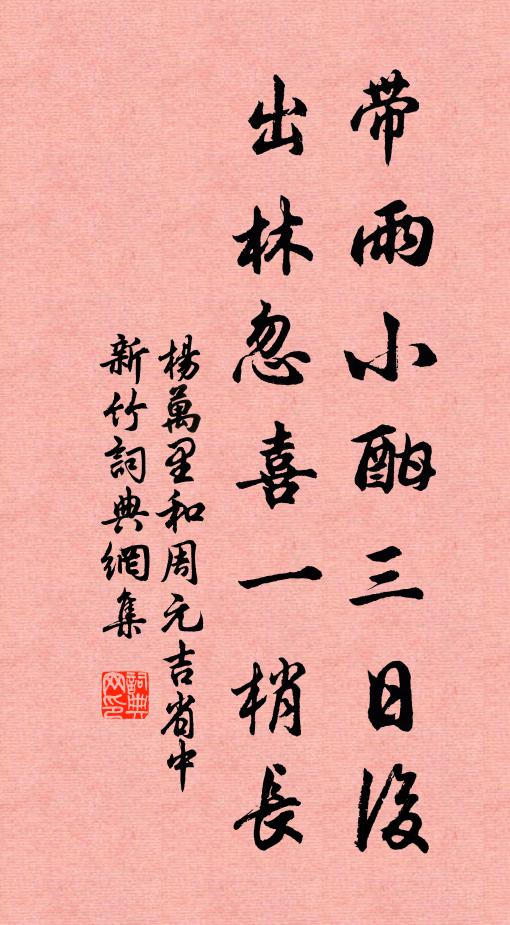 带雨小酣三日後
出林忽喜一梢長
楊萬里和周元吉省中
新竹詞典網集
詞典网印